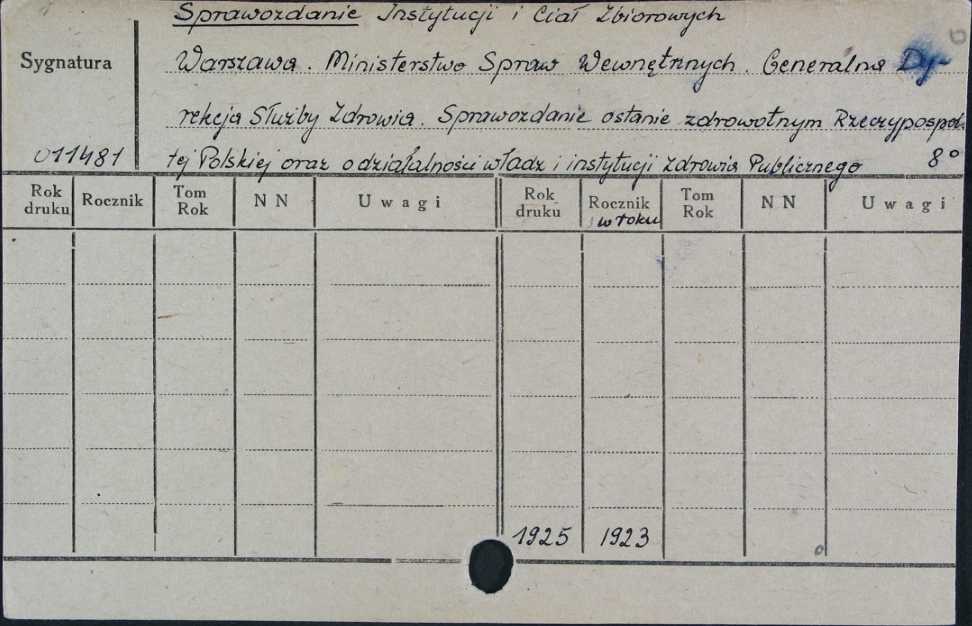 Sprawozdanie Instytucji i Ciał Zbiorowych
Sygnatura Warszawa. Ministerstwo Spraw Wewnętrznych. Generalna Dy-
rekcja Służby Zdrowia. Sprawozdanie ostanie zdrowotnym Rzeczypospol.
011481 tej Polskiej oraz o działalności władz i instytucji Zdrowia Publicznego 8°
Rok druku Rocznik Tom Rok NN Uwagi Rok druku Rocznik w toku Tom Rok NN Uwagi
1925 1923